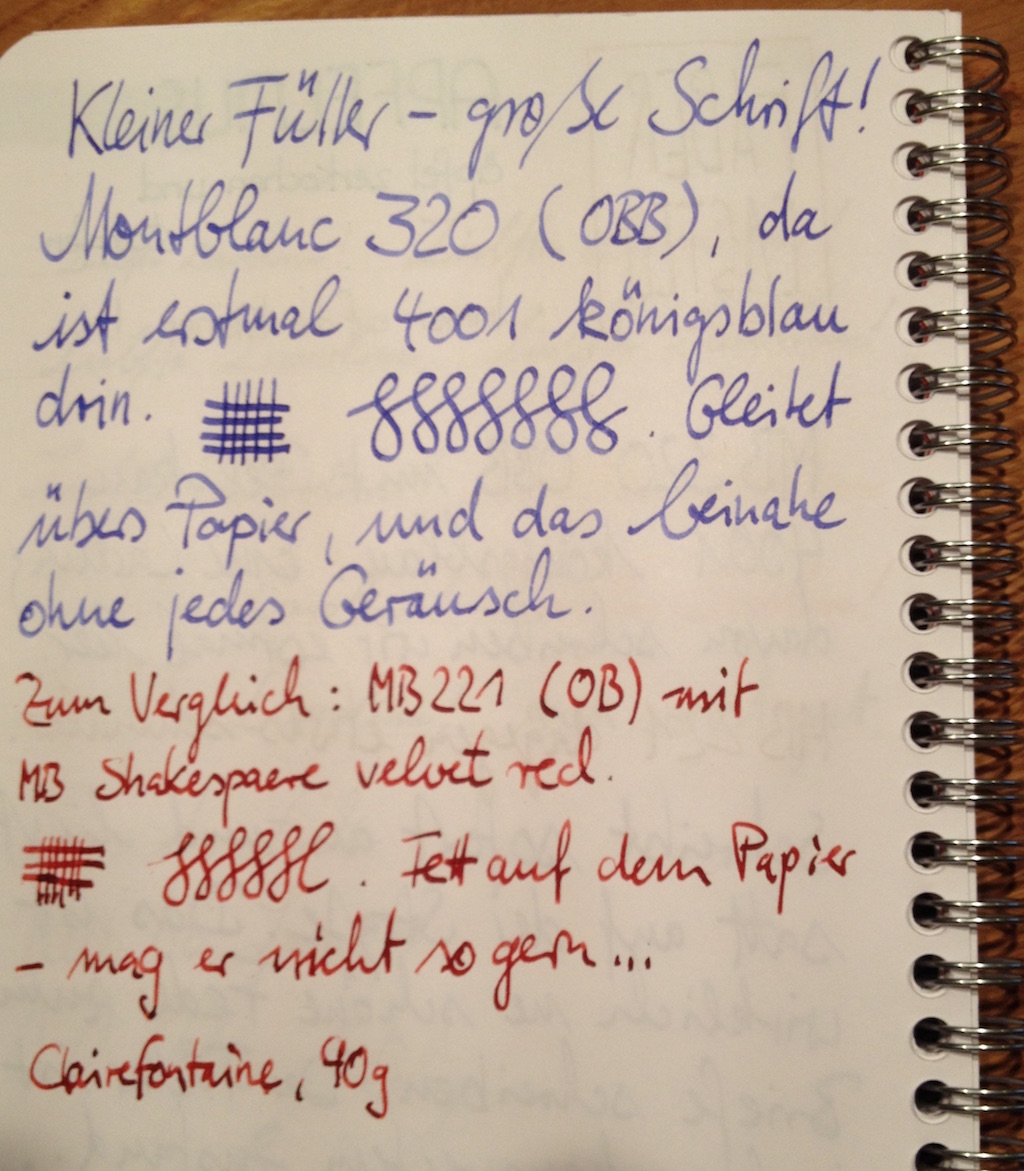 Kleiner Füller - große Schrift!
Montblanc 320 (OBB), da
ist erstmal 4001 königsblau
drin. Gleitet
übers Papier, und das beinahe
ohne jedes Geräusch.
Zum Vergleich: MB221 (OB) mit
MB Shakespaere velvet red.
Fett auf dem Papier
- mag er nicht so gern...
Clairefontaine, 90g